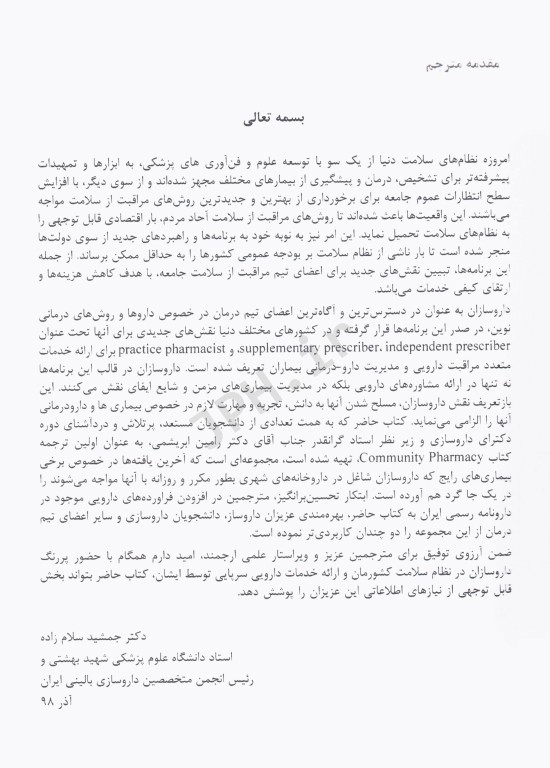 مقدمه مترجم
بسمه تعالی
امروزه نظام‌های سلامت دنیا از یک سو با توسعه علوم و فن‌آوری های پزشکی، به ابزارها و تمهیدات
پیشرفته‌تر برای تشخیص، درمان و پیشگیری از بیمارهای مختلف مجهز شده‌اند و از سوی دیگر، با افزایش
سطح انتظارات عموم جامعه برای برخورداری از بهترین و جدیدترین روش‌های مراقبت از سلامت مواجه
می‌باشند. این واقعیت‌ها باعث شده‌اند تا روش‌های مراقبت از سلامت آحاد مردم، بار اقتصادی قابل توجهی را
به نظام‌های سلامت تحمیل نماید. این امر نیز به نوبه خود به برنامه‌ها و راهبردهای جدید از سوی دولت‌ها
منجر شده است تا بار ناشی از نظام سلامت بر بودجه عمومی کشورها را به حداقل ممکن برساند. از جمله
این برنامه‌ها، تبیین نقش‌های جدید برای اعضای تیم مراقبت از سلامت جامعه، با هدف کاهش هزینه‌ها و
ارتقای کیفی خدمات می‌باشد.
داروسازان به عنوان در دسترس‌ترین و آگاه‌ترین اعضای تیم درمان در خصوص داروها و روش‌های درمانی
نوین، در صدر این برنامه‌ها قرار گرفته و در کشورهای مختلف دنیا نقش‌های جدیدی برای آنها تحت عنوان
supplementary prescriber، independent prescriber، و practice pharmacist برای ارائه خدمات
متعدد مراقبت دارویی و مدیریت دارو-درمانی بیماران تعریف شده است. داروسازان در قالب این برنامه‌ها
نه تنها در ارائه مشاوره‌های دارویی بلکه در مدیریت بیماری‌های مزمن و شایع ایفای نقش می‌کنند. این
بازتعریف نقش داروسازان، مسلح شدن آنها به دانش، تجربه و مهارت لازم در خصوص بیماری ها و دارودرمانی
آنها را الزامی می‌نماید. کتاب حاضر که به همت تعدادی از دانشجویان مستعد، پرتلاش و دردآشنای دوره
دکترای داروسازی و زیر نظر استاد گرانقدر جناب آقای دکتر رامین ابریشمی، به عنوان اولین ترجمه
کتاب Community Pharmacy، تهیه شده است، مجموعه‌ای است که آخرین یافته‌ها در خصوص برخی
بیماری‌های رایج که داروسازان شاغل در داروخانه‌های شهری بطور مکرر و روزانه با آنها مواجه می‌شوند را
در یک جا گرد هم آورده است. ابتکار تحسین‌برانگیز، مترجمین در افزودن فراورده‌های دارویی موجود در
دارونامه رسمی ایران به کتاب حاضر، بهره‌مندی عزیزان داروساز، دانشجویان داروسازی و سایر اعضای تیم
درمان از این مجموعه را دو چندان کاربردی‌تر نموده است.
ضمن آرزوی توفیق برای مترجمین عزیز و ویراستار علمی ارجمند، امید دارم همگام با حضور پررنگ
داروسازان در نظام سلامت کشورمان و ارائه خدمات دارویی سرپایی توسط ایشان، کتاب حاضر بتواند بخش
قابل توجهی از نیازهای اطلاعاتی این عزیزان را پوشش دهد.
دکتر جمشید سلام زاده
استاد دانشگاه علوم پزشکی شهید بهشتی و
رئیس انجمن متخصصین داروسازی بالینی ایران
آذر ۹۸